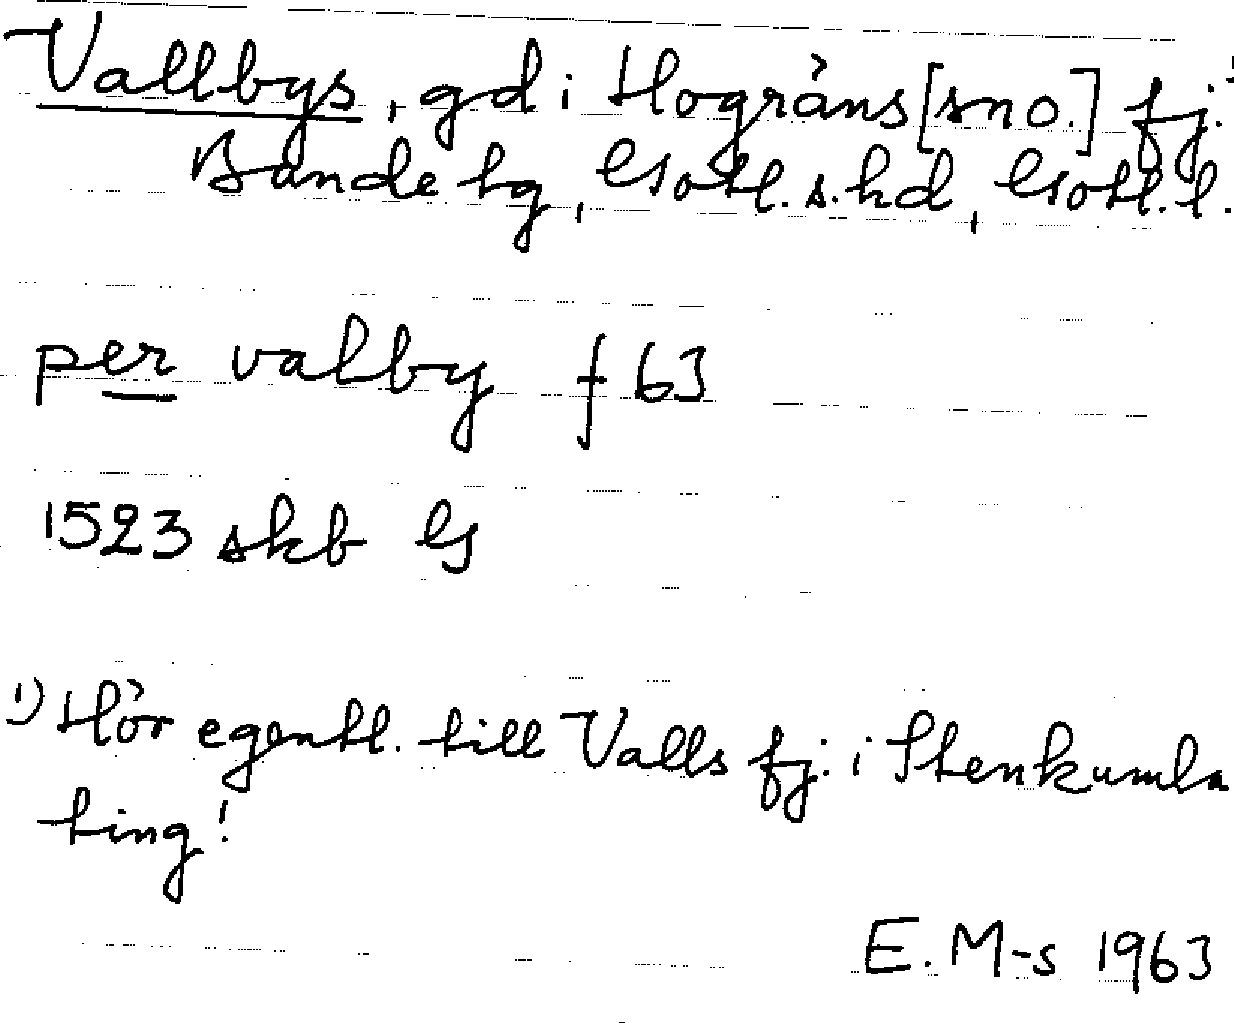 Vallbys, gd i Hogräns [sn o.] fj. 1)
Bande tg, Gotl. s. hd, Gotl. l.
per valby f 63
1523 skb G
1) Hör egentl. till Valls fj. i Stenkumla
ting!
E. M-s 1963